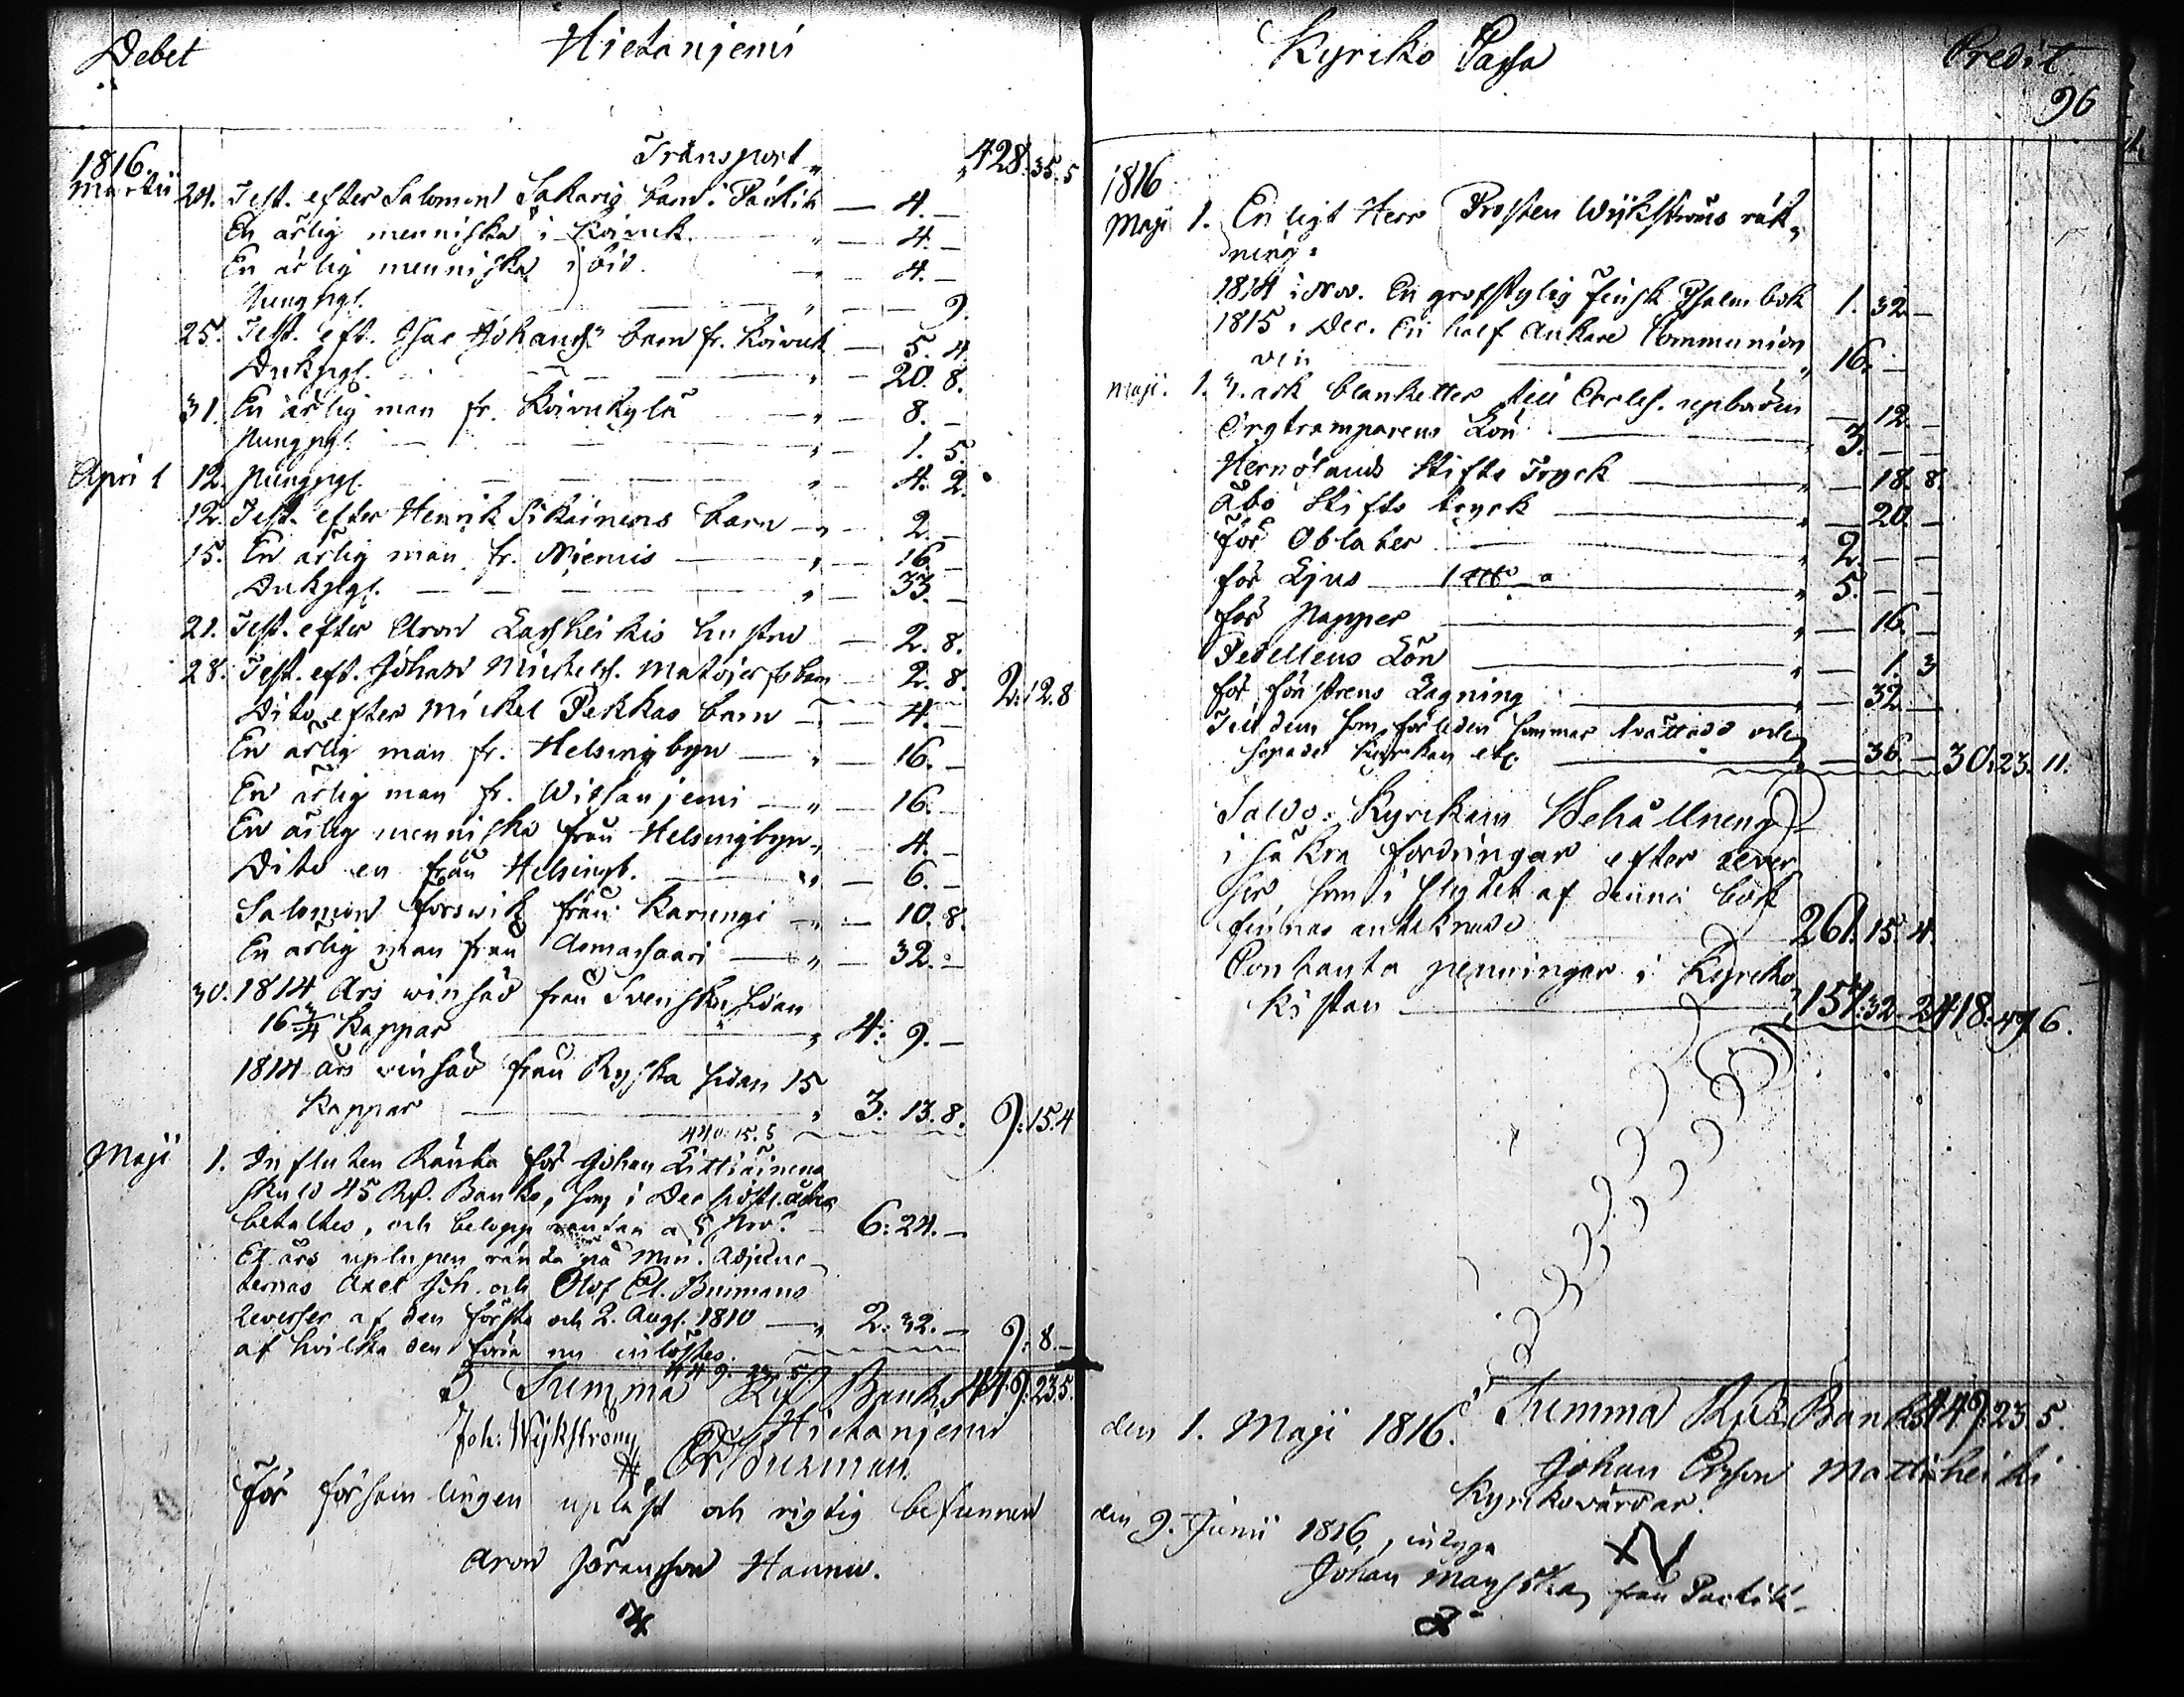 Debet Hietaniemi
Transport „ 428. 35. 5
1816.
Martii 24. Test. efter Salomon Sakaris barn i Päkkilä — 4. —
En ärlig menniska i Koivuk. „ — 4. —
En ärlig menniska ibid. „ — 4. —
Pungpgl. „ — — 9.
25. Test. eft. Isac Johanss. barn fr. Koivuk. — 5. 4.
Dukpgl. „ — 20. 8.
31. En ärlig man fr. Koivukylä „ — 8. —
Pungpgl. „ — 1. 5.
April 12. Pungpgl. „ — 4. 2.
12. Test. efter Henrik Sikainens barn „ — 2. —
15. En ärlig man fr. Niemis „ — 16. —
Dukpgl. „ — 33. —
21. Test. efter Aron Lassheikis hustru — 2. 8.
28. Test. eft. Johan Michelss. Matojerfs barn — 2. 8. 2: 12. 8
Dito efter Mickel Pekkas barn — 4. —
En ärlig man fr. Helsingbyn „ — 16. —
En ärlig man fr. Witsaniemi „ — 16. —
En ärlig menniska från Helsingbyn „ 4. —
Dito en från Helsingb. „ — 6. —
Salomon Forswik från Karungi „ — 10. 8.
En ärlig man från Armassaari „ — 32. —
30. 1814 Års winsäd från Svenska sidan
16 3/4 Kappar „ 4: 9. —
1814 års vinsäd från Ryska sidan 15
Kappar „ 3: 13. 8. 9: 15. 4
440. 15. 5
Maji 1. Influten Ränta för Johan Littiäinens
skuld 45 Rd. Banko, som i Dec. sistl. år
betaltes, och belopp räntan a 5 Pro C. 6: 24. —
Et års uplupen ränta på Min. Adjunc-
ternas Axel Joh. och Olof Et. Burmans
Reverser af den första och 2. Aug. 1810 — „ 2: 32. —
af hvilka den förra nu inlöstes. 9: 8. —
449. 23. 5
Summa Rd Banko 449: 23. 5.
Joh: Wykström Hietaniemi
Burman
För församlingen upläst och rigtig befunnen
Aron Jöransson Hannu.
Kyrko Cassa Credit
96
1816
Maji 1. Enligt Herr Prosten Wykströms räk-
ning:
1814 i Nov. En grofstylig Finsk Psalmbok 1. 32. —
1815 i Dec. En half Ankare Communion
vin „ 16. —
Maji. 1. 3. ark blanketter till Eccles. upbörden — 12. —
Orgtramparens Lön 3. — —
Hernösands Stifts Tryck „ — 18. 8.
Åbo Stifts tryck „ — 20. —
För Oblater „ 2. — —
för Ljus „ 5. — —
för Papper „ — 16. —
Pedellens Lön „ — 1. 3
för fönstrens Lagning „ — 32. —
Till dem som förleden sommar tvättade och
sopade kyrkan etc. — 36 — 30. 23. 11.
Saldo: Kyrkans Behållning
i säkra fordringar efter Rever-
ser, som i slutet af denna bok
finnas antecknade 261. 15. 4.
Contanta penningar i Kyrko-
kistan 157: 32. 2 418: 47 6.
Summa Rd. Banko 449. 23. 5.
den 1. Maji 1816.
Johan Ersson Mattisheiki
Kyrkovärdar.
den 9. Junii 1816, intyga
Johan från Päkkilä.